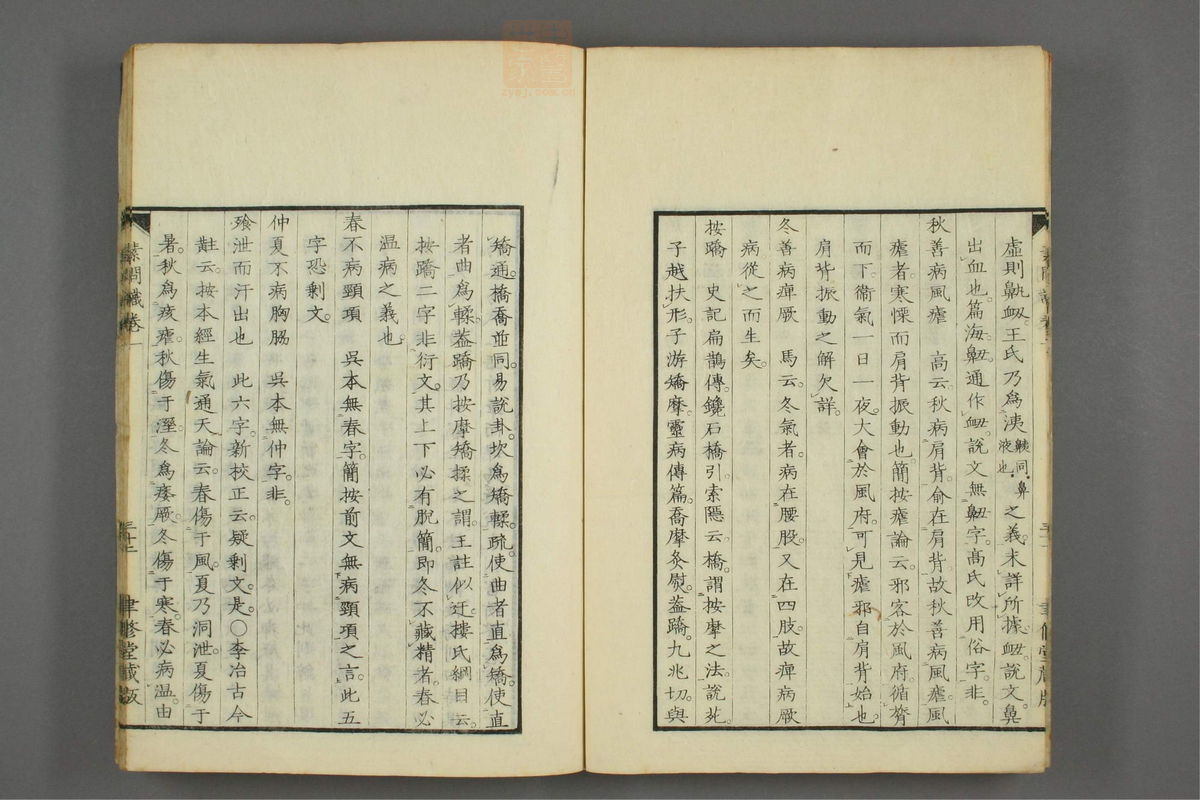 虛則鼽衂。王氏乃爲洟 鼽同。鼻液也。 之義。未詳所據。衂。說文。鼻
出血也。篇海。䶊通作衂。說文無䶊字。高氏改用俗字。非。
秋善病風瘧 高云。秋病肩背。俞在肩背。故秋善病風瘧。風
瘧者。寒慄而肩背振動也。簡按瘧論云。邪客於風府。循膂
而下。衞氣一日一夜。大會於風府。可見瘧邪自肩背始也。
肩背振動之解欠詳。
冬善病痺厥 馬云。冬氣者。病在腰股。又在四肢。故痺病厥
病從之而生矣。
按蹻 史記扁鵲傳。鑱石橋引。索隱云。橋。謂按摩之法。說苑。
子越扶形。子游矯摩。靈病傳篇。喬摩灸熨。蓋蹻。九兆切。與
矯通。橋喬並同。易說卦。坎爲矯輮。疏。使曲者直爲矯。使直
者曲爲輮。蓋蹻乃按摩矯揉之謂。王註似迂。樓氏綱目云。
按蹻二字非衍文。其上下必有脫簡。即冬不藏精者。春必
温病之義也。
春不病頸項 吳本無春字。簡按前文無病頸項之言。此五
字恐剩文。
仲夏不病胸脇 吳本無仲字。非。
飱泄而汗出也 此六字。新校正云。疑剩文。是。○李冶古今
黈云。按本經生氣通天論云。春傷于風。夏乃洞泄。夏傷于
暑。秋爲痎瘧。秋傷于溼。冬爲痿厥。冬傷于寒。春必病温。由
素問識卷一
三十二
聿修堂藏版